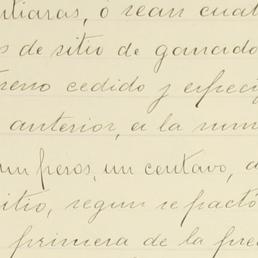 ntiaras, ó sean cuat
s de sitio de ganado
reno cedido y especi
anterior, a la sum
un pesos, un centavo, a
itio, segun se pactó
primera de la pre